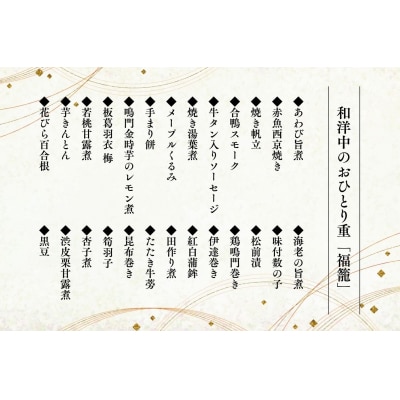 和洋中のおひとり重「福籠」
◆あわび旨煮
◆赤魚西京焼き
◆焼き帆立
◆合鴨スモーク
◆牛タン入りソーセージ
◆焼き湯葉煮
◆メープルくるみ
◆手まり餅
◆鳴門金時芋のレモン煮
◆板葛羽衣 梅
◆若桃甘露煮
◆芋きんとん
◆花びら百合根
◆海老の旨煮
◆味付数の子
◆松前漬
◆鶏鳴門巻き
◆伊達巻き
◆紅白蒲鉾
◆田作り煮
◆たたき牛蒡
◆昆布巻き
◆筍羽子
◆杏子煮
◆渋皮栗甘露煮
◆黒豆